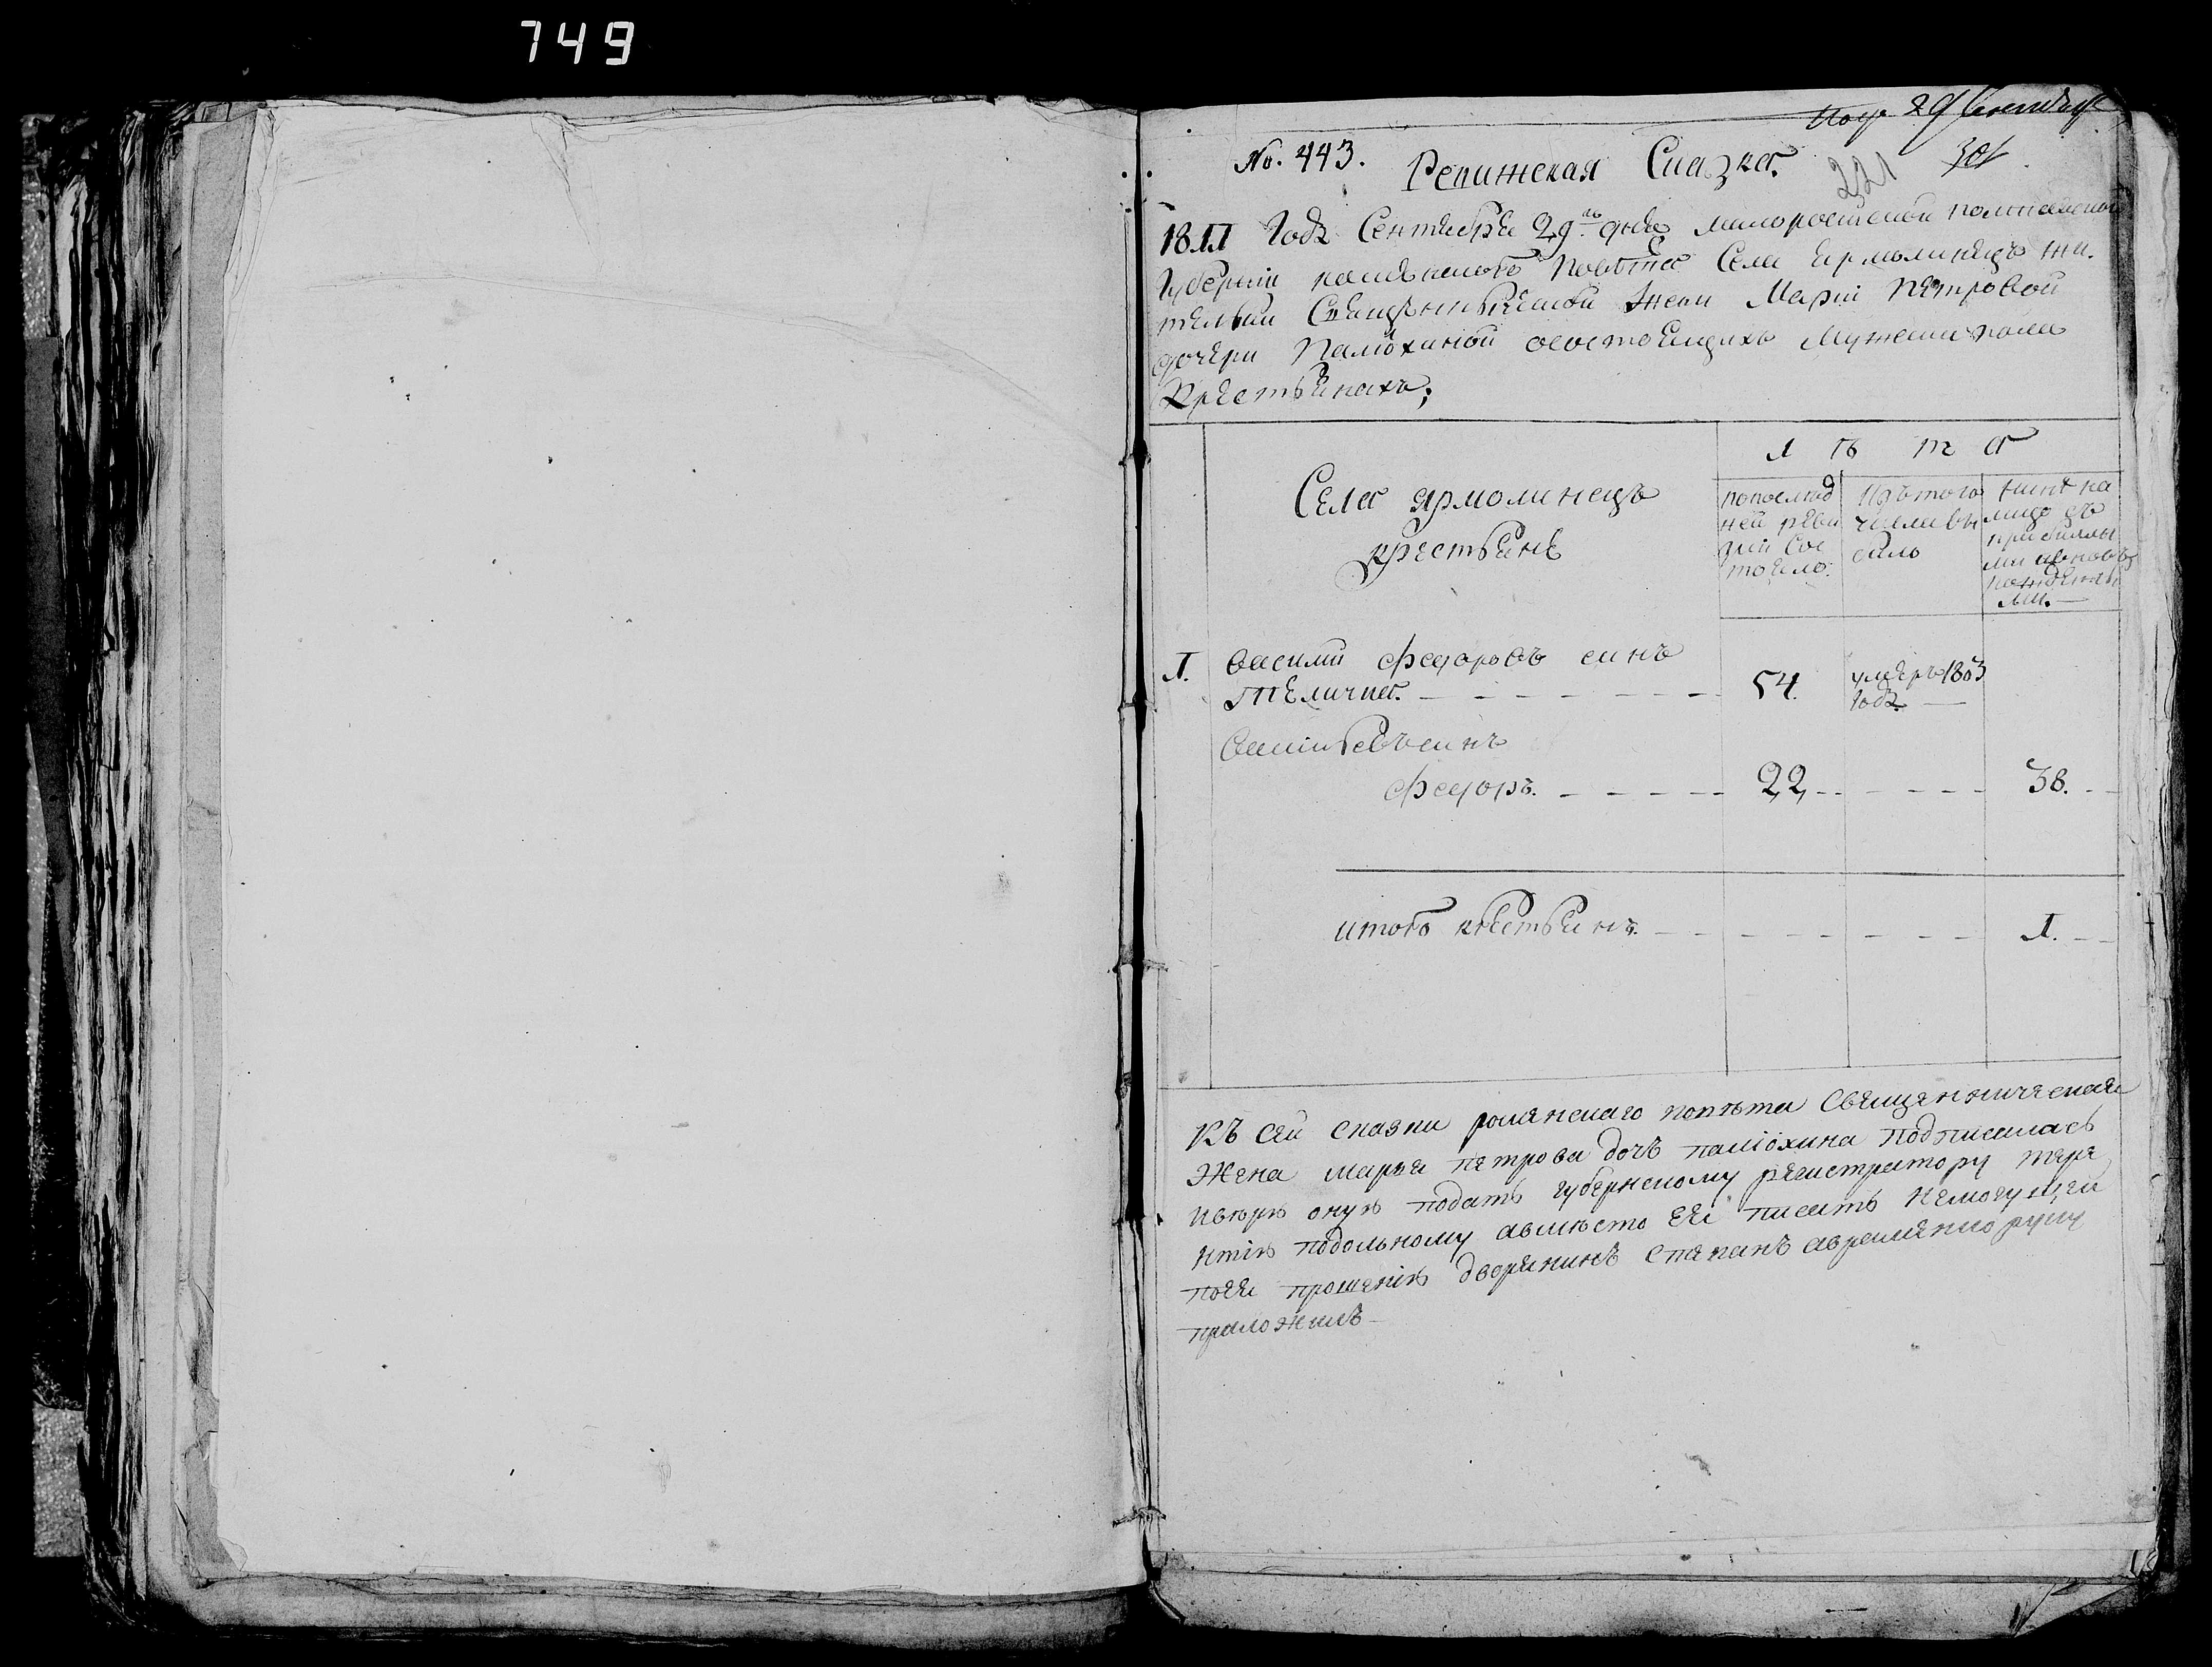 749
29 Сентября
No. 443. Ревижская Сказка. 221
1811 Года Сентября 29го дня малоросийской полтавской
Губернии роменского повѣта Села Ярмолинецъ жи-
тельки Священнической жены Марiи Петровой
дочери Палiохиной осостоящихъ мужеска пола
Крестьянахъ;
Села Ярмолинецъ
крестьяне
Л ѣ т а
попослѣд
ней реви
зии сос
тояло:
Изътого
числа вы
было
нынѣ на
лицо съ
прибылы
ми и вновь
рожденны
ми.
1. Василий Федоровъ синъ
Теличка. 54. умеръ 1803
Года.
Василiевъ синъ
Федоръ. 22 38.
итого крестьянъ. 1.
Къ сей сказки роменскаго повѣта Священническая
Жена марья петрова дочъ палiохина подписалась
ивѣрю оную подать губернскому регистратору тере
нтiю подольному авмѣсто её писать немогущей
поея прошенiю дворянинъ степанъ авраменко руку
приложилъ